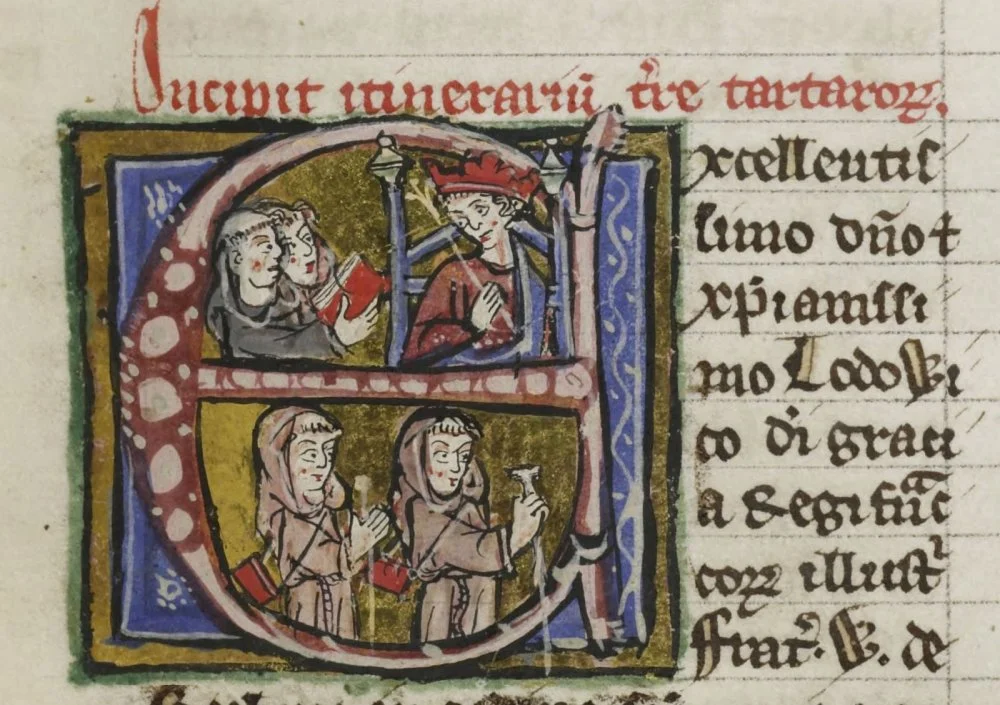 Incipit itinerariū t̄re tartaroꝝ.
Excellentis
simo dn̄o ⁊
xp̄ianissi
mo Lodowi
co di graci
a Regi franc
coꝝ illustr
ffrat̄. W. de